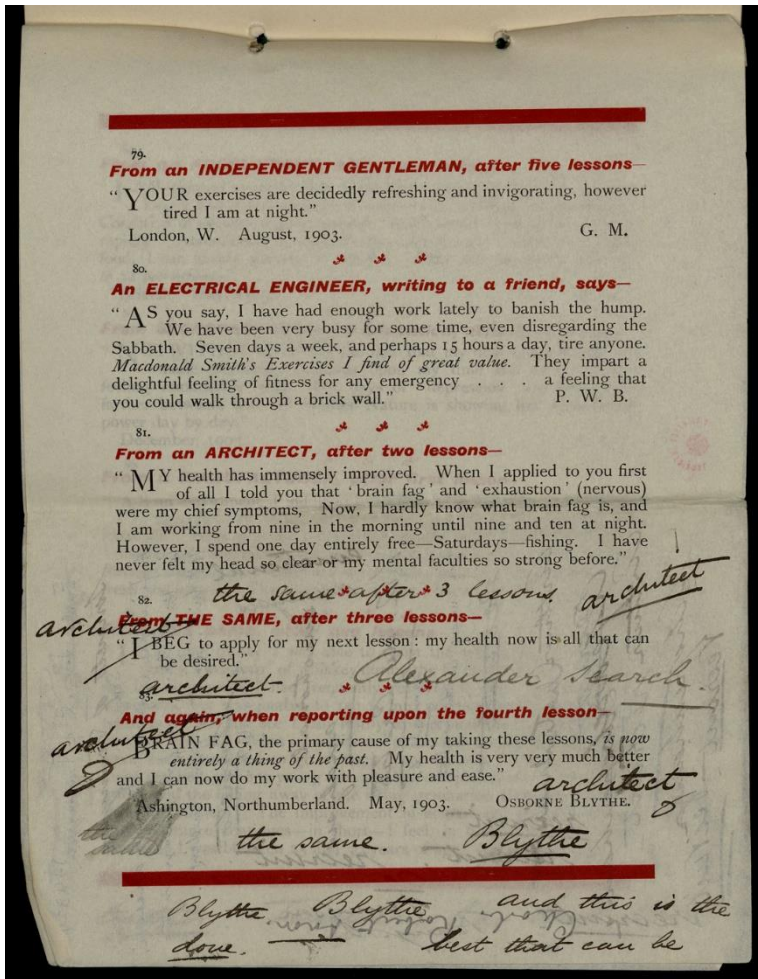 79.
From an INDEPENDENT GENTLEMAN, after five lessons—
“YOUR exercises are decidedly refreshing and invigorating, however
tired I am at night.”
London, W. August, 1903. G. M.
80.
An ELECTRICAL ENGINEER, writing to a friend, says—
“AS you say, I have had enough work lately to banish the hump.
We have been very busy for some time, even disregarding the
Sabbath. Seven days a week, and perhaps 15 hours a day, tire anyone.
Macdonald Smith's Exercises I find of great value. They impart a
delightful feeling of fitness for any emergency . . . a feeling that
you could walk through a brick wall.” P. W. B.
81.
From an ARCHITECT, after two lessons—
“MY health has immensely improved. When I applied to you first
of all I told you that ‘brain fag’ and ‘exhaustion’ (nervous)
were my chief symptoms, Now, I hardly know what brain fag is, and
I am working from nine in the morning until nine and ten at night.
However, I spend one day entirely free—Saturdays—fishing. I have
never felt my head so clear or my mental faculties so strong before.”
the same after 3 lessons. architect
82.
architect
From THE SAME, after three lessons—
“I BEG to apply for my next lesson : my health now is all that can
be desired.”
Alexander Search.
83. architect.
And again, when reporting upon the fourth lesson—
architect
BRAIN FAG, the primary cause of my taking these lessons, is now
entirely a thing of the past. My health is very very much better
and I can now do my work with pleasure and ease.” architect
Ashington, Northumberland. May, 1903. OSBORNE BLYTHE.
the same. Blythe
Blythe Blythe and this is the
done. best that can be